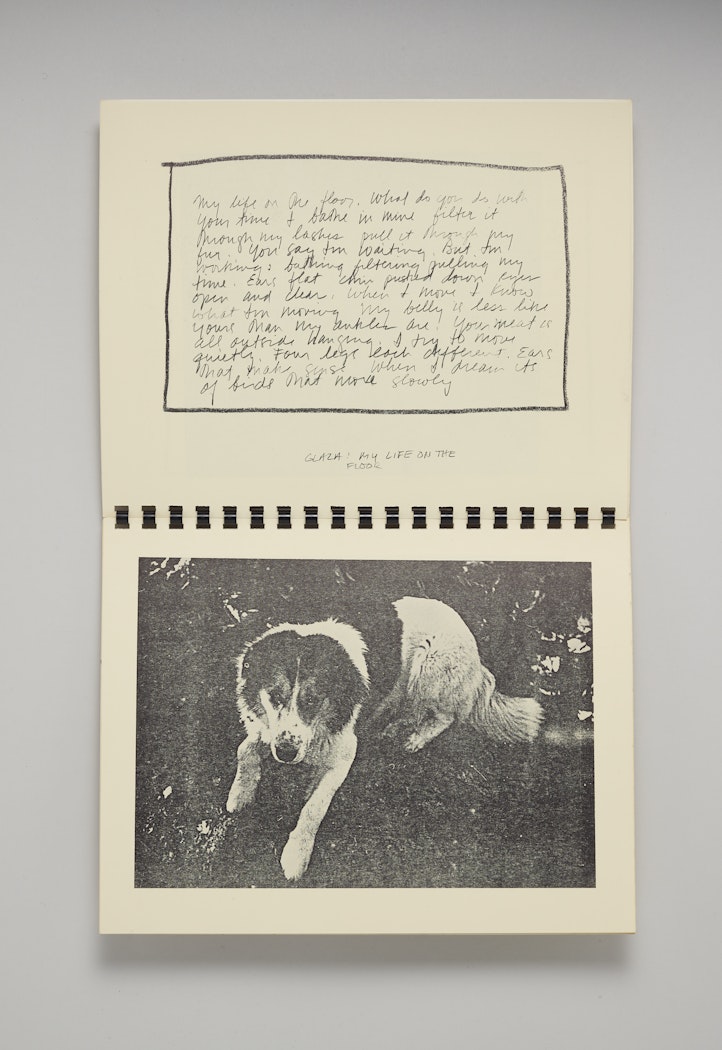 My life on the floor. What do you do with
your time I bathe in mine filter it
through my lashes pull it through my
fur. You say I'm waiting. But I'm
working: bathing filtering pulling my
time. Ears flat chin pushed down eyes
open and clear. When I move I know
what I'm moving My belly is less like
yours than my ankles are. Your meat is
all outside hanging. I try to move
quietly. Four legs each different. Ears
that make sense When I dream its
of birds that move slowly
GLAZA: MY LIFE ON THE
FLOOR